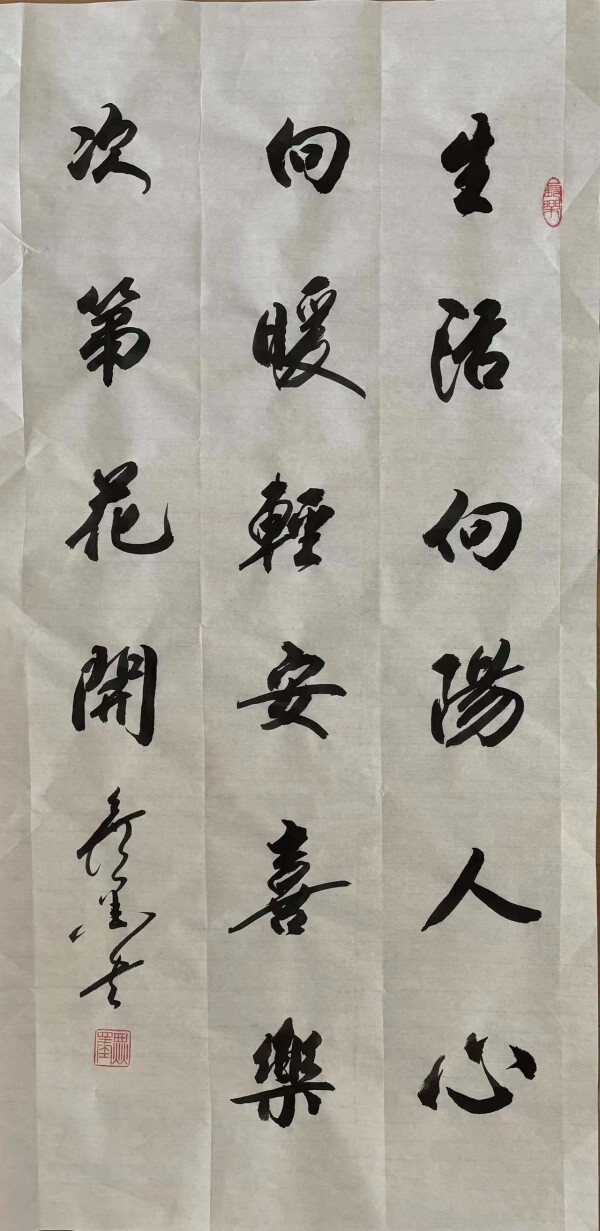 生活向陽人心
向暖輕安喜樂
次第花開